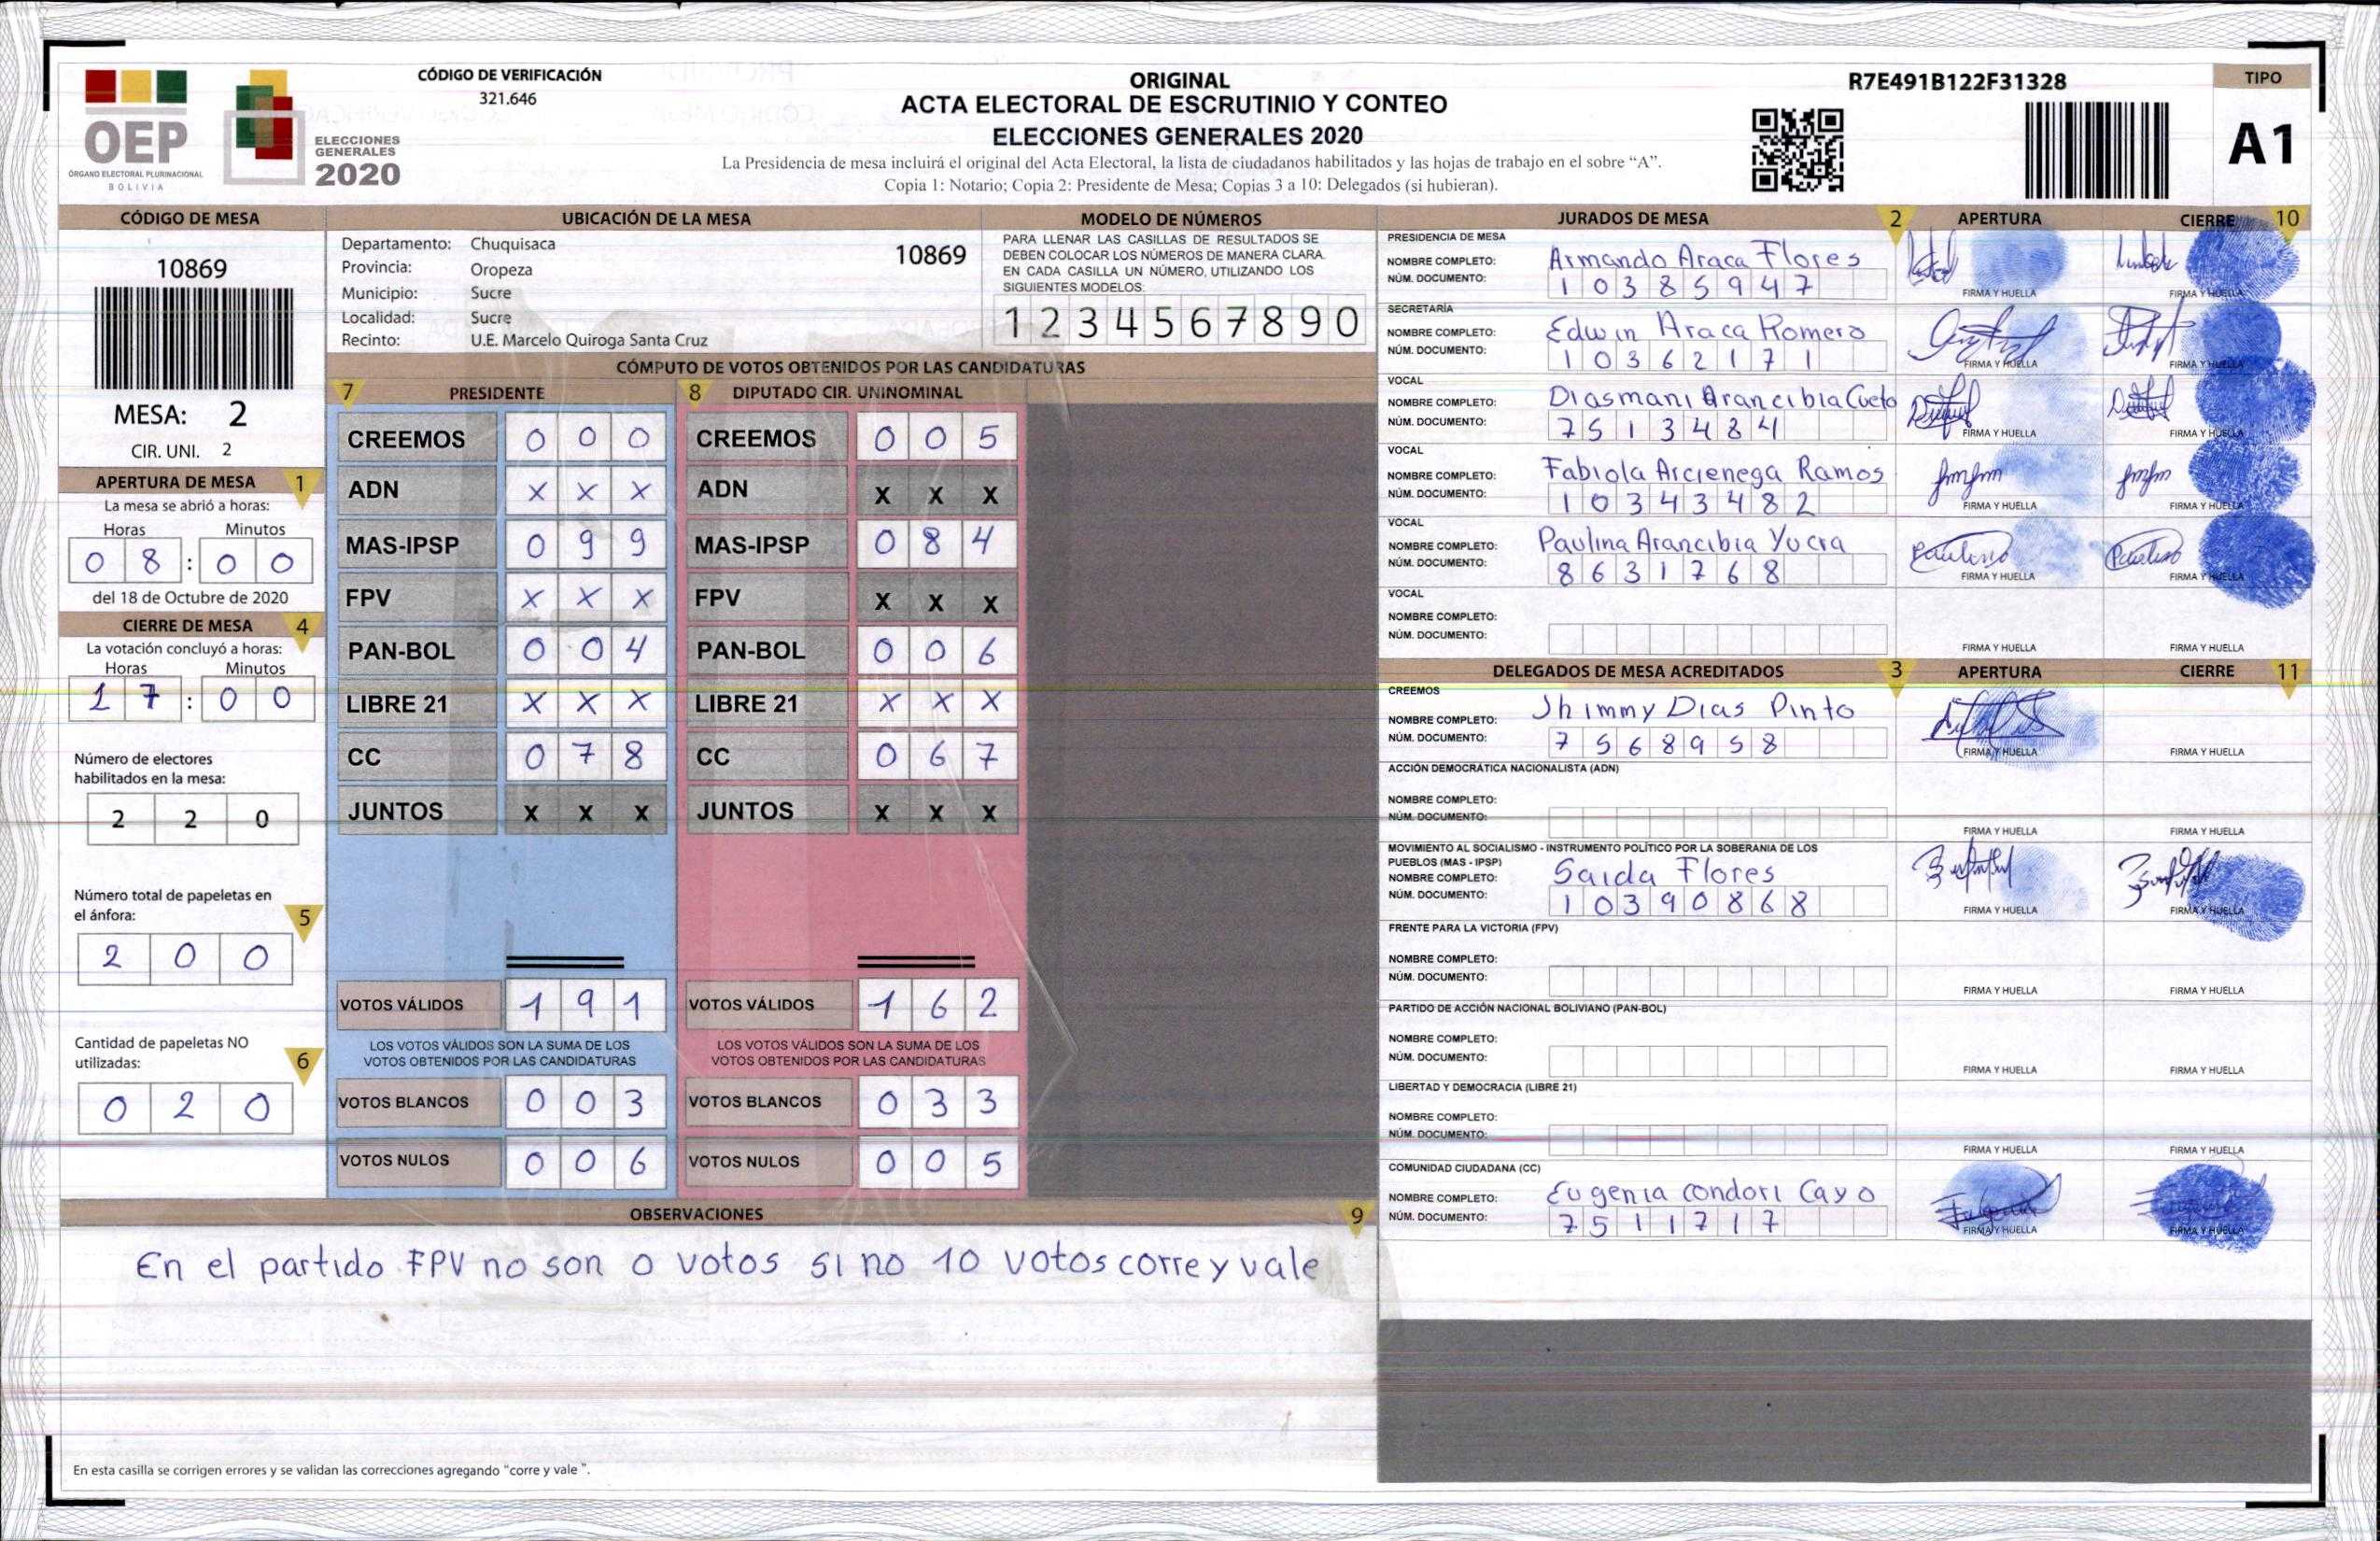 CÓDIGO DE VERIFICACIÓN
321.646
OEP
ÓRGANO ELECTORAL PLURINACIONAL
BOLIVIA
ELECCIONES
GENERALES
2020
ORIGINAL
ACTA ELECTORAL DE ESCRUTINIO Y CONTEO
ELECCIONES GENERALES 2020
La Presidencia de mesa incluirá el original del Acta Electoral, la lista de ciudadanos habilitados y las hojas de trabajo en el sobre “A”.
Copia 1: Notario; Copia 2: Presidente de Mesa; Copias 3 a 10: Delegados (si hubieran).
R7E491B122F31328
TIPO
A1
CÓDIGO DE MESA
10869
MESA: 2
CIR. UNI. 2
APERTURA DE MESA 1
La mesa se abrió a horas:
Horas Minutos
0 8 : 0 0
del 18 de Octubre de 2020
CIERRE DE MESA 4
La votación concluyó a horas:
Horas Minutos
1 7 : 0 0
Número de electores
habilitados en la mesa:
2 2 0
Número total de papeletas en
el ánfora: 5
2 0 0
Cantidad de papeletas NO
utilizadas: 6
0 2 0
UBICACIÓN DE LA MESA
Departamento: Chuquisaca 10869
Provincia: Oropeza
Municipio: Sucre
Localidad: Sucre
Recinto: U.E. Marcelo Quiroga Santa Cruz
MODELO DE NÚMEROS
PARA LLENAR LAS CASILLAS DE RESULTADOS SE
DEBEN COLOCAR LOS NÚMEROS DE MANERA CLARA.
EN CADA CASILLA UN NÚMERO, UTILIZANDO LOS
SIGUIENTES MODELOS:
1 2 3 4 5 6 7 8 9 0
CÓMPUTO DE VOTOS OBTENIDOS POR LAS CANDIDATURAS
7 PRESIDENTE 8 DIPUTADO CIR. UNINOMINAL
CREEMOS 0 0 0 CREEMOS 0 0 5
ADN X X X ADN X X X
MAS-IPSP 0 9 9 MAS-IPSP 0 8 4
FPV X X X FPV X X X
PAN-BOL 0 0 4 PAN-BOL 0 0 6
LIBRE 21 X X X LIBRE 21 X X X
CC 0 7 8 CC 0 6 7
JUNTOS X X X JUNTOS X X X
VOTOS VÁLIDOS 1 9 1 VOTOS VÁLIDOS 1 6 2
LOS VOTOS VÁLIDOS SON LA SUMA DE LOS LOS VOTOS VÁLIDOS SON LA SUMA DE LOS
VOTOS OBTENIDOS POR LAS CANDIDATURAS VOTOS OBTENIDOS POR LAS CANDIDATURAS
VOTOS BLANCOS 0 0 3 VOTOS BLANCOS 0 3 3
VOTOS NULOS 0 0 6 VOTOS NULOS 0 0 5
OBSERVACIONES 9
En el partido FPV no son 0 votos si no 10 votos corre y vale
En esta casilla se corrigen errores y se validan las correcciones agregando "corre y vale ".
JURADOS DE MESA 2 APERTURA CIERRE 10
PRESIDENCIA DE MESA
NOMBRE COMPLETO: Armando Araca Flores
NÚM. DOCUMENTO: 1 0 3 8 5 9 4 7
FIRMA Y HUELLA FIRMA Y HUELLA
SECRETARÍA
NOMBRE COMPLETO: Edwin Araca Romero
NÚM. DOCUMENTO: 1 0 3 6 2 1 7 1
FIRMA Y HUELLA FIRMA Y HUELLA
VOCAL
NOMBRE COMPLETO: Diasmani Arancibia Cueto
NÚM. DOCUMENTO: 7 5 1 3 4 8 4
FIRMA Y HUELLA FIRMA Y HUELLA
VOCAL
NOMBRE COMPLETO: Fabiola Arcienega Ramos
NÚM. DOCUMENTO: 1 0 3 4 3 4 8 2
FIRMA Y HUELLA FIRMA Y HUELLA
VOCAL
NOMBRE COMPLETO: Paulina Arancibia Yucra
NÚM. DOCUMENTO: 8 6 3 1 7 6 8
FIRMA Y HUELLA FIRMA Y HUELLA
VOCAL
NOMBRE COMPLETO:
NÚM. DOCUMENTO:
FIRMA Y HUELLA FIRMA Y HUELLA
DELEGADOS DE MESA ACREDITADOS 3 APERTURA CIERRE 11
CREEMOS
NOMBRE COMPLETO: Jhimmy Dias Pinto
NÚM. DOCUMENTO: 7 5 6 8 9 5 8
FIRMA Y HUELLA FIRMA Y HUELLA
ACCIÓN DEMOCRÁTICA NACIONALISTA (ADN)
NOMBRE COMPLETO:
NÚM. DOCUMENTO:
FIRMA Y HUELLA FIRMA Y HUELLA
MOVIMIENTO AL SOCIALISMO - INSTRUMENTO POLÍTICO POR LA SOBERANIA DE LOS
PUEBLOS (MAS - IPSP)
NOMBRE COMPLETO: Saida Flores
NÚM. DOCUMENTO: 1 0 3 9 0 8 6 8
FIRMA Y HUELLA FIRMA Y HUELLA
FRENTE PARA LA VICTORIA (FPV)
NOMBRE COMPLETO:
NÚM. DOCUMENTO:
FIRMA Y HUELLA FIRMA Y HUELLA
PARTIDO DE ACCIÓN NACIONAL BOLIVIANO (PAN-BOL)
NOMBRE COMPLETO:
NÚM. DOCUMENTO:
FIRMA Y HUELLA FIRMA Y HUELLA
LIBERTAD Y DEMOCRACIA (LIBRE 21)
NOMBRE COMPLETO:
NÚM. DOCUMENTO:
FIRMA Y HUELLA FIRMA Y HUELLA
COMUNIDAD CIUDADANA (CC)
NOMBRE COMPLETO: Eugenia Condori Cayo
NÚM. DOCUMENTO: 7 5 1 1 7 1 7
FIRMA Y HUELLA FIRMA Y HUELLA